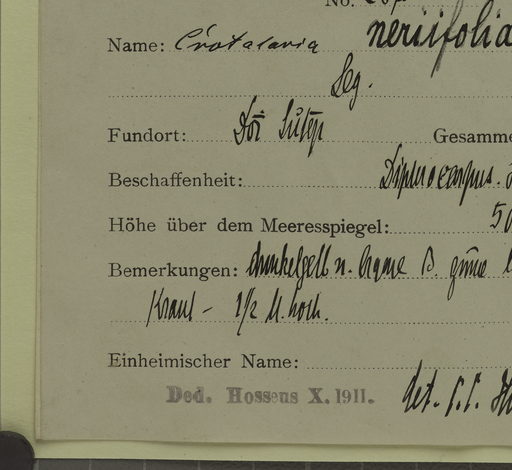 No.
Name: Crotalaria neriifolia
Leg.
Fundort: Doi Sutep Gesamme
Beschaffenheit: Dipterocarpus.
Höhe über dem Meeresspiegel: 50
Bemerkungen: dunkelgelb n. B. grüne
Kraut - 1/2 M. hoch.
Einheimischer Name:
Ded. Hosseus X. 1911.
det. C. C. Ho